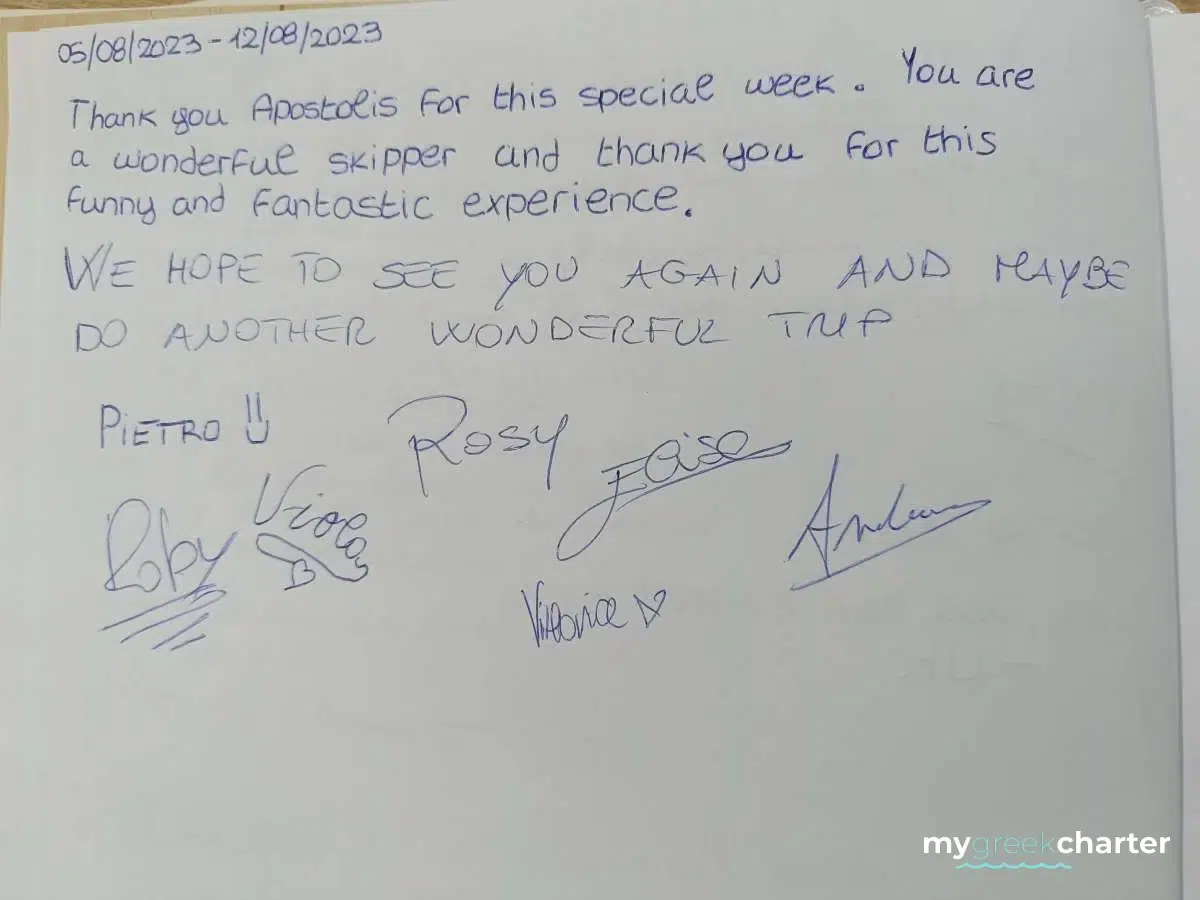 05/08/2023 - 12/08/2023
Thank you Apostolis for this special week. You are
a wonderful skipper and thank you for this
funny and fantastic experience.
WE HOPE TO SEE YOU AGAIN AND MAYBE
DO ANOTHER WONDERFUL TRIP
PIETRO
Rosy
Elisa
Roby
Viola
Andrea
mygreekcharter